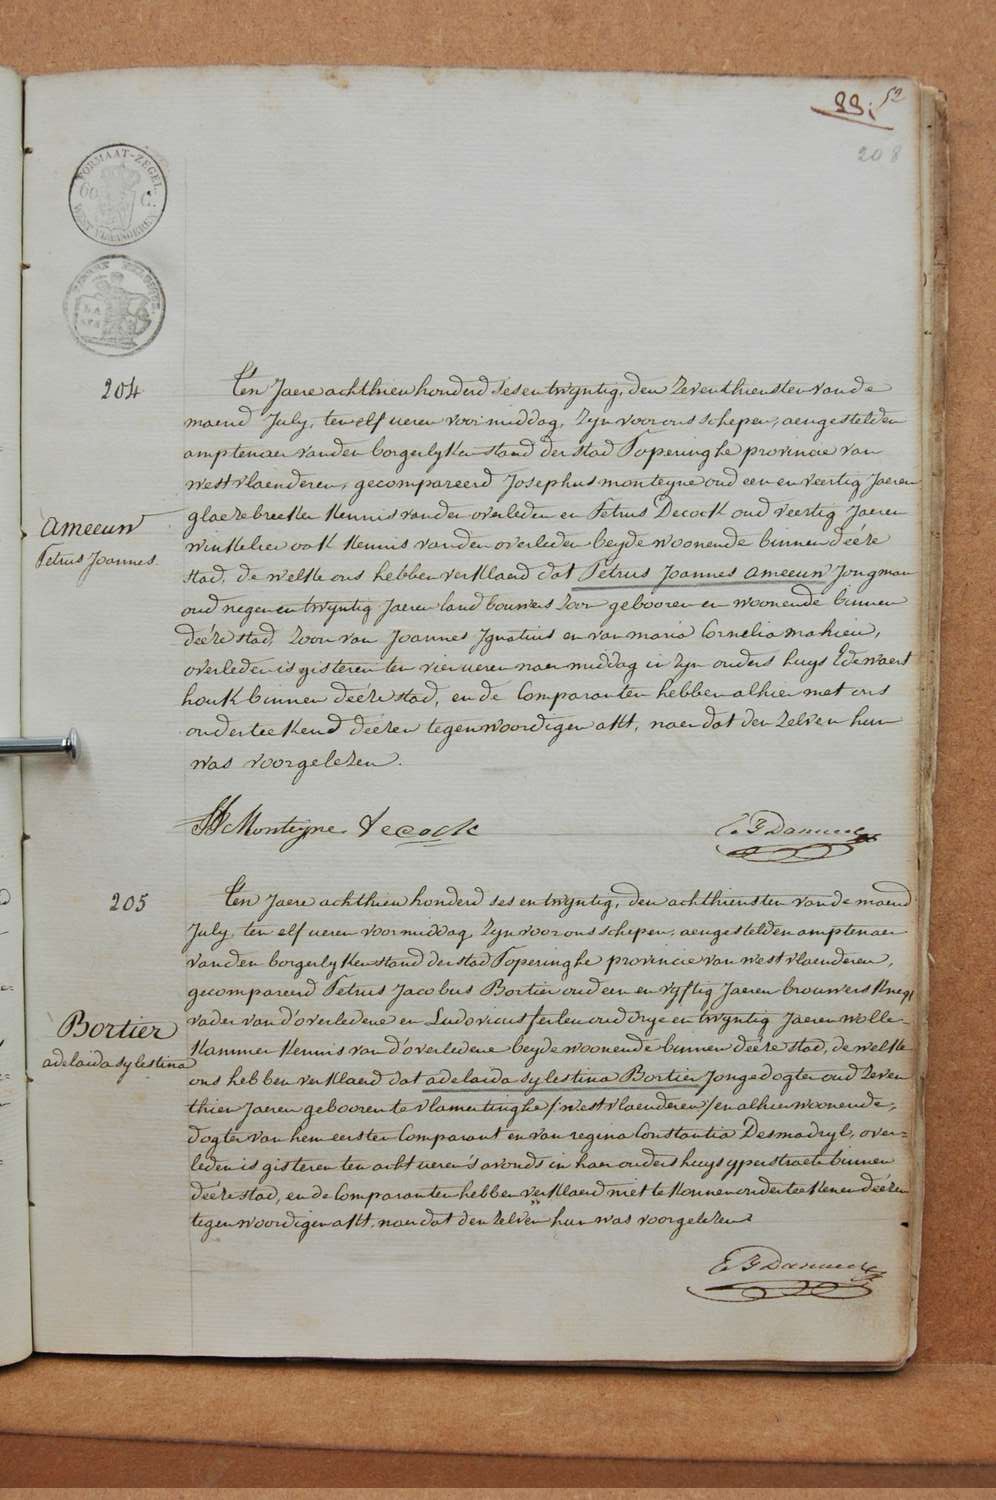 88; 52
208
FORMAAT-ZEGEL
60 C.
WEST VLAANDEREN
204
Ten Jaere achthien honderd ses en twyntig, den Zeventhiensten van de
maend July, ten elf ueren voormiddag, Zyn voor ons schepen, aengestelden
amptenaer vanden borgerlyken stand der stad Poperinghe provincie van
westvlaenderen, gecompareerd Josephus monteyne oud een en veertig Jaeren
glaezebreeker Kennis vanden overleden en Petrus Decock oud veertig Jaeren
winkelier ook Kennis vanden overleden beyde woonende binnen déeze
stad, de welke ons hebben verklaerd dat Petrus Joannes ameeuw Jongman
oud negen en twyntig Jaeren landbouwers Zoon gebooren en woonende binnen
déeze stad, Zoon van Joannes Ignatius en van maria Cornelia mahieu,
overleden is gisteren ten vier ueren naermiddag in Zyn ouders huys Edewaert
houk binnen déeze stad, en de Comparanten hebben alhier met ons
onderteekend déezen tegenwoordigen akt, naer dat den Zelven hun
was voorgelezen.
Ameeuw
Petrus Joannes
Monteyne Decock
205
Ten Jaere achthien honderd ses en twyntig, den achthiensten van de maend
July, ten elf ueren voormiddag, Zyn voor ons schepen, aengestelden amptenaer
vanden borgerlyken stand der stad Poperinghe provincie van westvlaenderen,
gecompareerd Petrus Jacobus Bortier oud een en vyftig Jaeren brouwers Knegt
vader van d'overledene en Ludovicus ferlen oud drye en twyntig Jaeren wolle-
Kammer Kennis van d'overledene beyde woonende binnen déeze stad, de welke
ons hebben verklaerd dat adelaida sylestina Bortier Jonge dogter oud Zeven
thien Jaeren gebooren te vlamertinghe /westvlaenderen/ en alhier woonende,
dogter van hem eersten Comparant en van regina Constantia Desmadryl, over=
leden is gisteren ten acht ueren 's avonds in haer ouders huys yperstraete binnen
déeze stad, en de Comparanten hebben verklaerd niet te Konnen onderteekenen déezen
tegenwoordigen akt, naer dat den Zelven hun was voorgelezen.
Bortier
adelaida sylestina